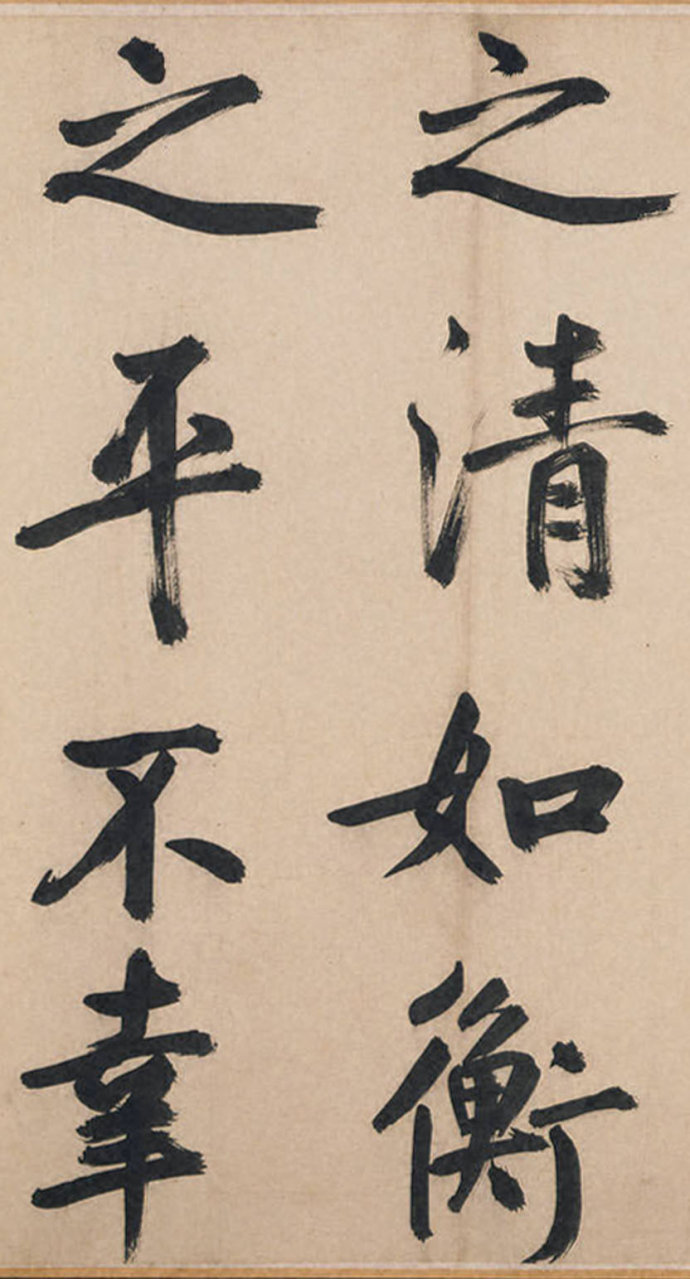 之清如衡
之平不幸